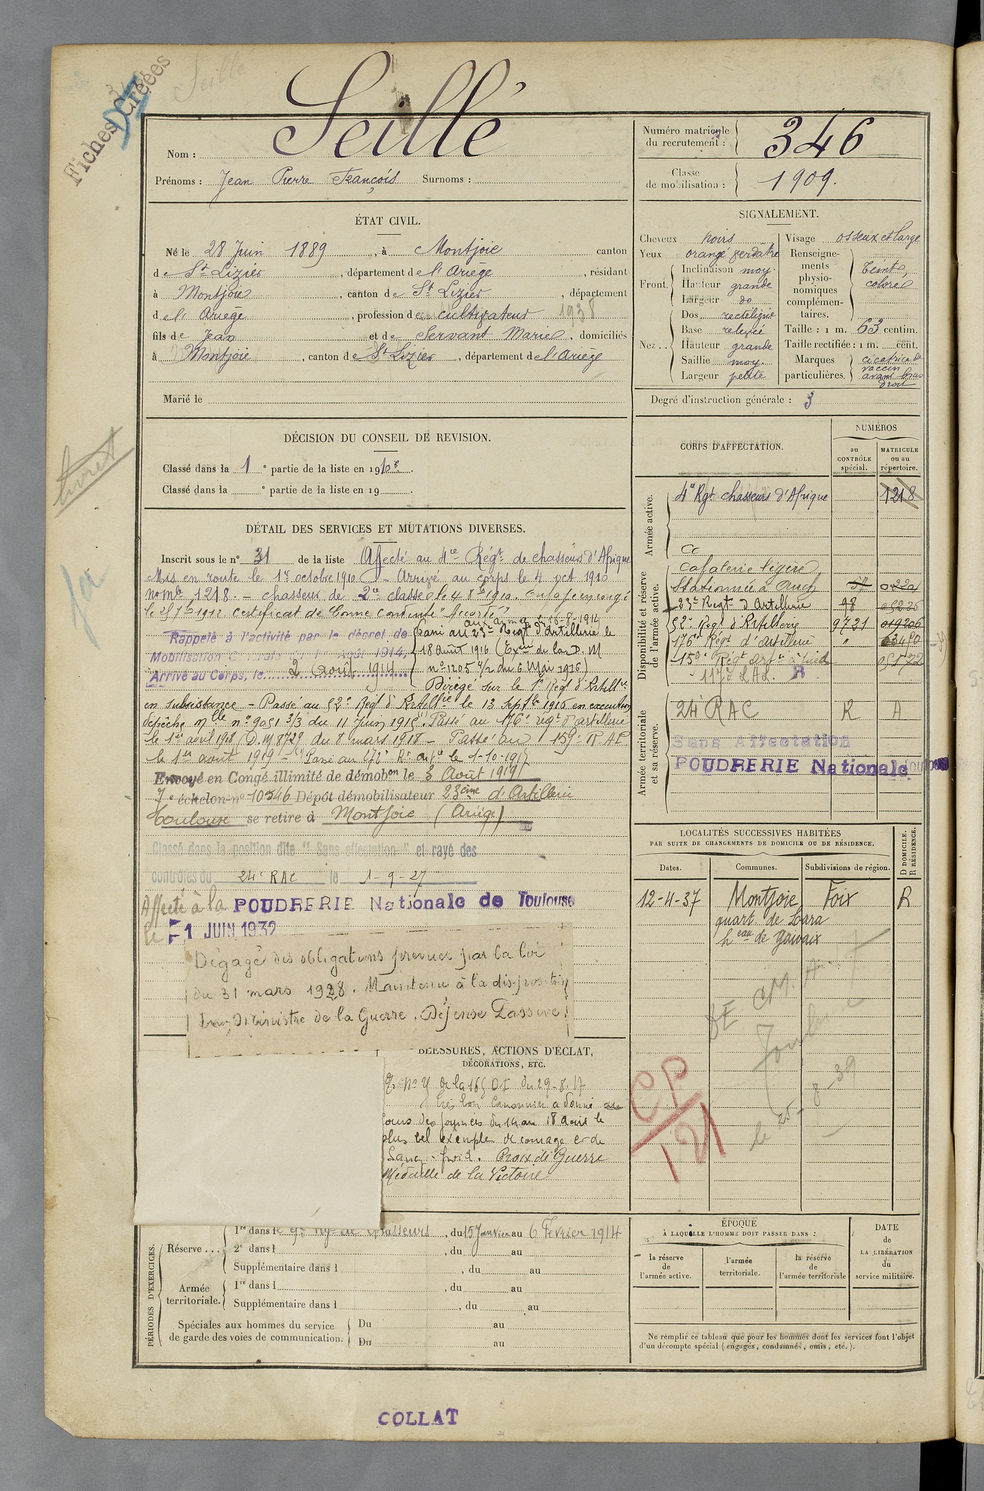 Fiches Créées
Seillé
Nom : Seillé
Prénoms : Jean Pierre François Surnoms :
Numéro matricule du recrutement : 346
Classe de mobilisation : 1909.
ÉTAT CIVIL.
Né le 28 Juin 1889, à Montjoie canton
de St Lizier, département de l'Ariège, résidant
à Montjoie, canton de St Lizier, département
de l'Ariège, profession de cultivateur 1938
fils de Jean et de Servant Marie, domiciliés
à Montjoie, canton de St Lizier, département de l'Ariège
Marié le
SIGNALEMENT.
Cheveux noirs
Yeux orangé verdatre
Front. Inclinaison moy.
Hauteur grande
Largeur do
Nez.. Dos rectiligne
Base relevée
Hauteur grande
Saillie moy.
Largeur petite
Visage osseux et large
Renseignements physionomiques complémentaires. Teint coloré
Taille : 1 m. 63 centim.
Taille rectifiée : 1 m. cent.
Marques particulières. cicatrice de vaccin avant bras droit
Degré d'instruction générale : 3
DÉCISION DU CONSEIL DE REVISION.
Classé dans la 1e partie de la liste en 1910
Classé dans la e partie de la liste en 19
DÉTAIL DES SERVICES ET MUTATIONS DIVERSES.
Inscrit sous le n° 31 de la liste Affecté au 4me Régt de chasseurs d'Afrique
Mis en route le 1er octobre 1910. - Arrivé au corps le 4 oct 1910
no mle 1218. - chasseur de 2e classe le 4 8bre 1910.
Certificat de bonne conduite "Accordé"
Rappelé à l'activité par le décret de
Mobilisation Générale du 1er Août 1914,
Arrivé au Corps, le 2 Août 1914
Passé au 23e Régt d'Artillerie le
18 août 1916
n° 1205 1/2 du 6 Mai 1916)
Dirigé sur le
en subsistance - Passé au 52e Rég d'Artillie le 13 Septbre 1916 en exécution
dépêche mlle n° 9051 3/3 du 11 Juin 1916. Passé au 176e régt d'artillerie
le 1er avril 1918 (D.M 8729 du 8 mars 1918 - Passé au 159e RAP
le 1er août 1919 -
Envoyé en Congé illimité de démobon le 3 Août 1919
7e échelon n° 10346 Dépôt démobilisateur 23ème d'Artillerie
Toulouse se retire à Montjoie (Ariège)
Classé dans la position dite "Sans affectation" et rayé des
contrôles du 24e RAC le 1-9-27
Affecté à la POUDRERIE Nationale de Toulouse
le 1 JUIN 1932
Dégagé des obligations prévues par la loi
du 31 mars 1928. Maintenu à la disposition
du Ministre de la Guerre. Défense Passive.
CORPS D'AFFECTATION.
NUMÉROS
au CONTRÔLE spécial.
MATRICULE ou au répertoire.
Armée active.
4e Rgt chasseurs d'Afrique 1218
Disponibilité et réserve de l'armée active.
Cavalerie légère
Stationnée à Auch
23e Régt d'Artillerie 48
52e Régt d'Artillerie 9731
176e Régt d'artillerie
Armée territoriale et sa réserve.
24e RAC R A
Sans Affectation
POUDRERIE Nationale Toulouse
LOCALITÉS SUCCESSIVES HABITÉES
PAR SUITE DE CHANGEMENTS DE DOMICILE OU DE RÉSIDENCE.
Dates. Communes. Subdivisions de région. D DOMICILE. R RÉSIDENCE.
12-4-37 Montjoie Foix R
quart. de Lara
heau de Gavaix
Toulouse
le 25-8-39
CP
121
BLESSURES, ACTIONS D'ÉCLAT,
DÉCORATIONS, ETC.
du 29-8-17
très bon canonnier a donné
cours des journées du 14 au 18 août le
plus bel exemple de courage et de
Sang-froid. Croix de Guerre
Médaille de la Victoire
PÉRIODES D'EXERCICES.
Réserve... 1re dans le 9e Rgt de Chasseurs, du 15 Janvier au 6 Février 1914
2e dans l, du au
Supplémentaire dans l, du au
Armée territoriale. 1re dans l, du au
Supplémentaire dans l, du au
Spéciales aux hommes du service de garde des voies de communication. Du au
Du au
ÉPOQUE
À LAQUELLE L'HOMME DOIT PASSER DANS :
la réserve de l'armée active.
l'armée territoriale.
la réserve de l'armée territoriale
DATE DE LA LIBÉRATION du service militaire.
Ne remplir ce tableau que pour les hommes dont les services font l'objet
d'un décompte spécial (engagés, condamnés, omis, etc.).
COLLAT